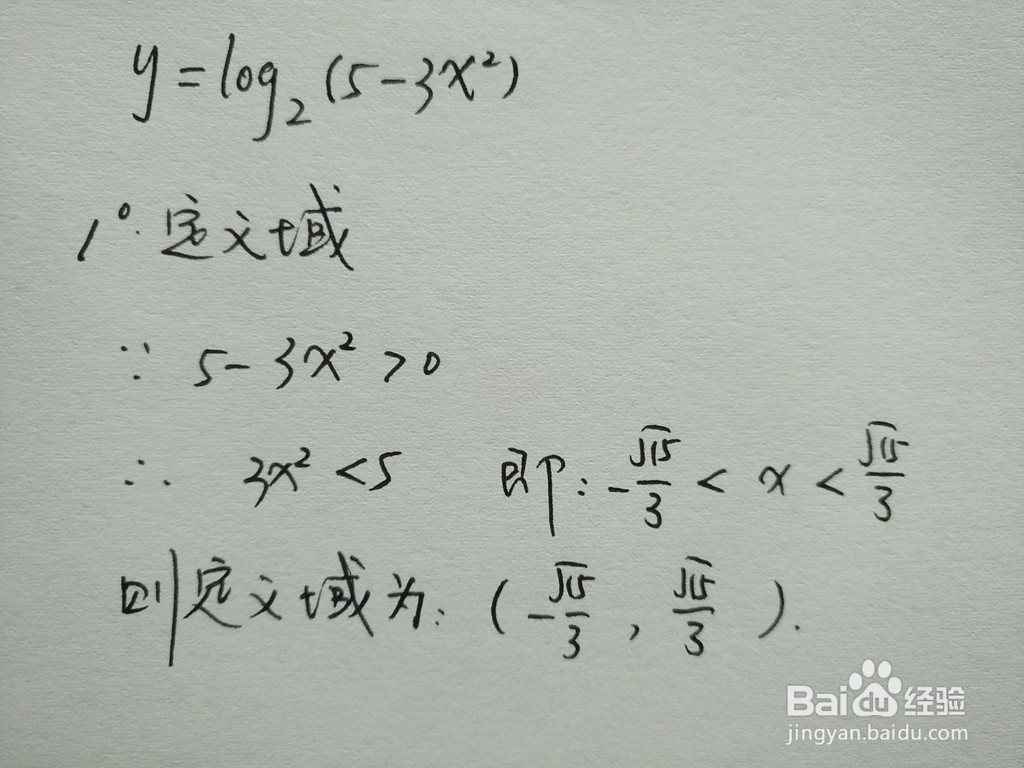 y=log₂(5-3x²)
1°.定义域
∵ 5-3x²>0
∴ 3x²<5 即:-√15/3<x<√15/3
则定义域为:(-√15/3,√15/3).
Baidu经验
jingyan.baidu.com